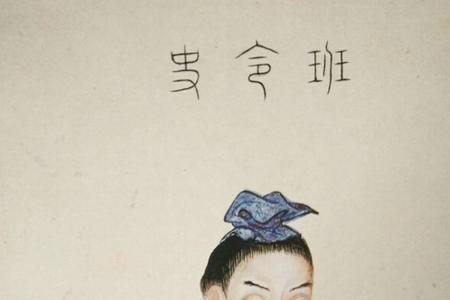 班令史